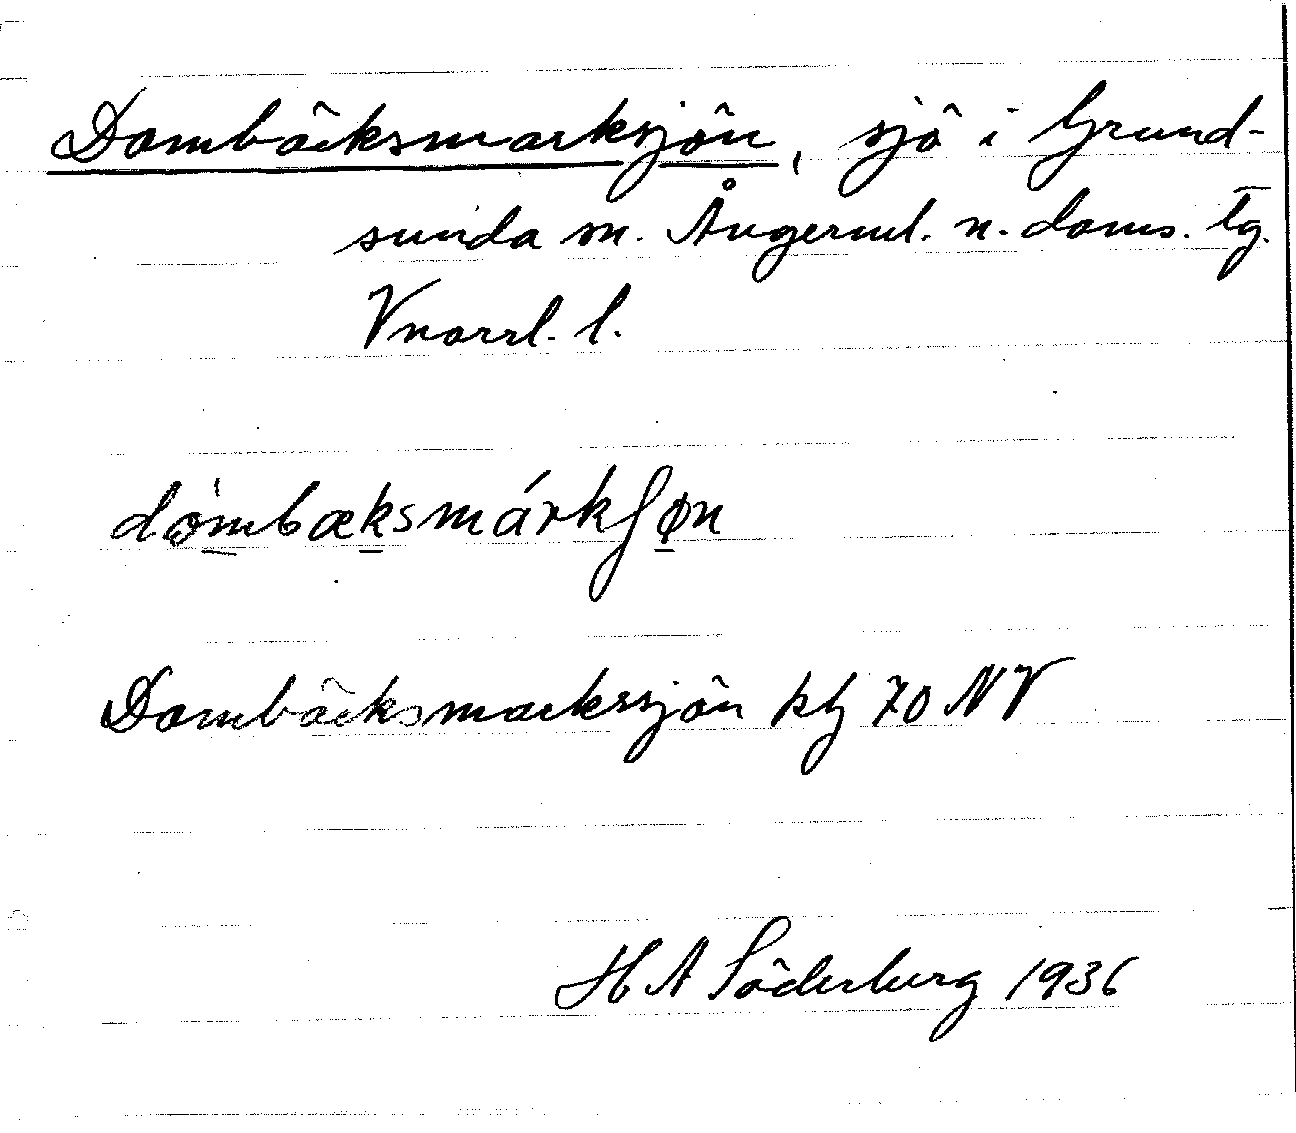 Dombäcksmarksjön, sjö i Grund-
sunda sn. Ångerml. n. doms. tg.
Vnorrl. l.
dòmbæksmárkʃøn
Dombäcksmarkssjön kbl 70 NV
H A Söderberg 1936